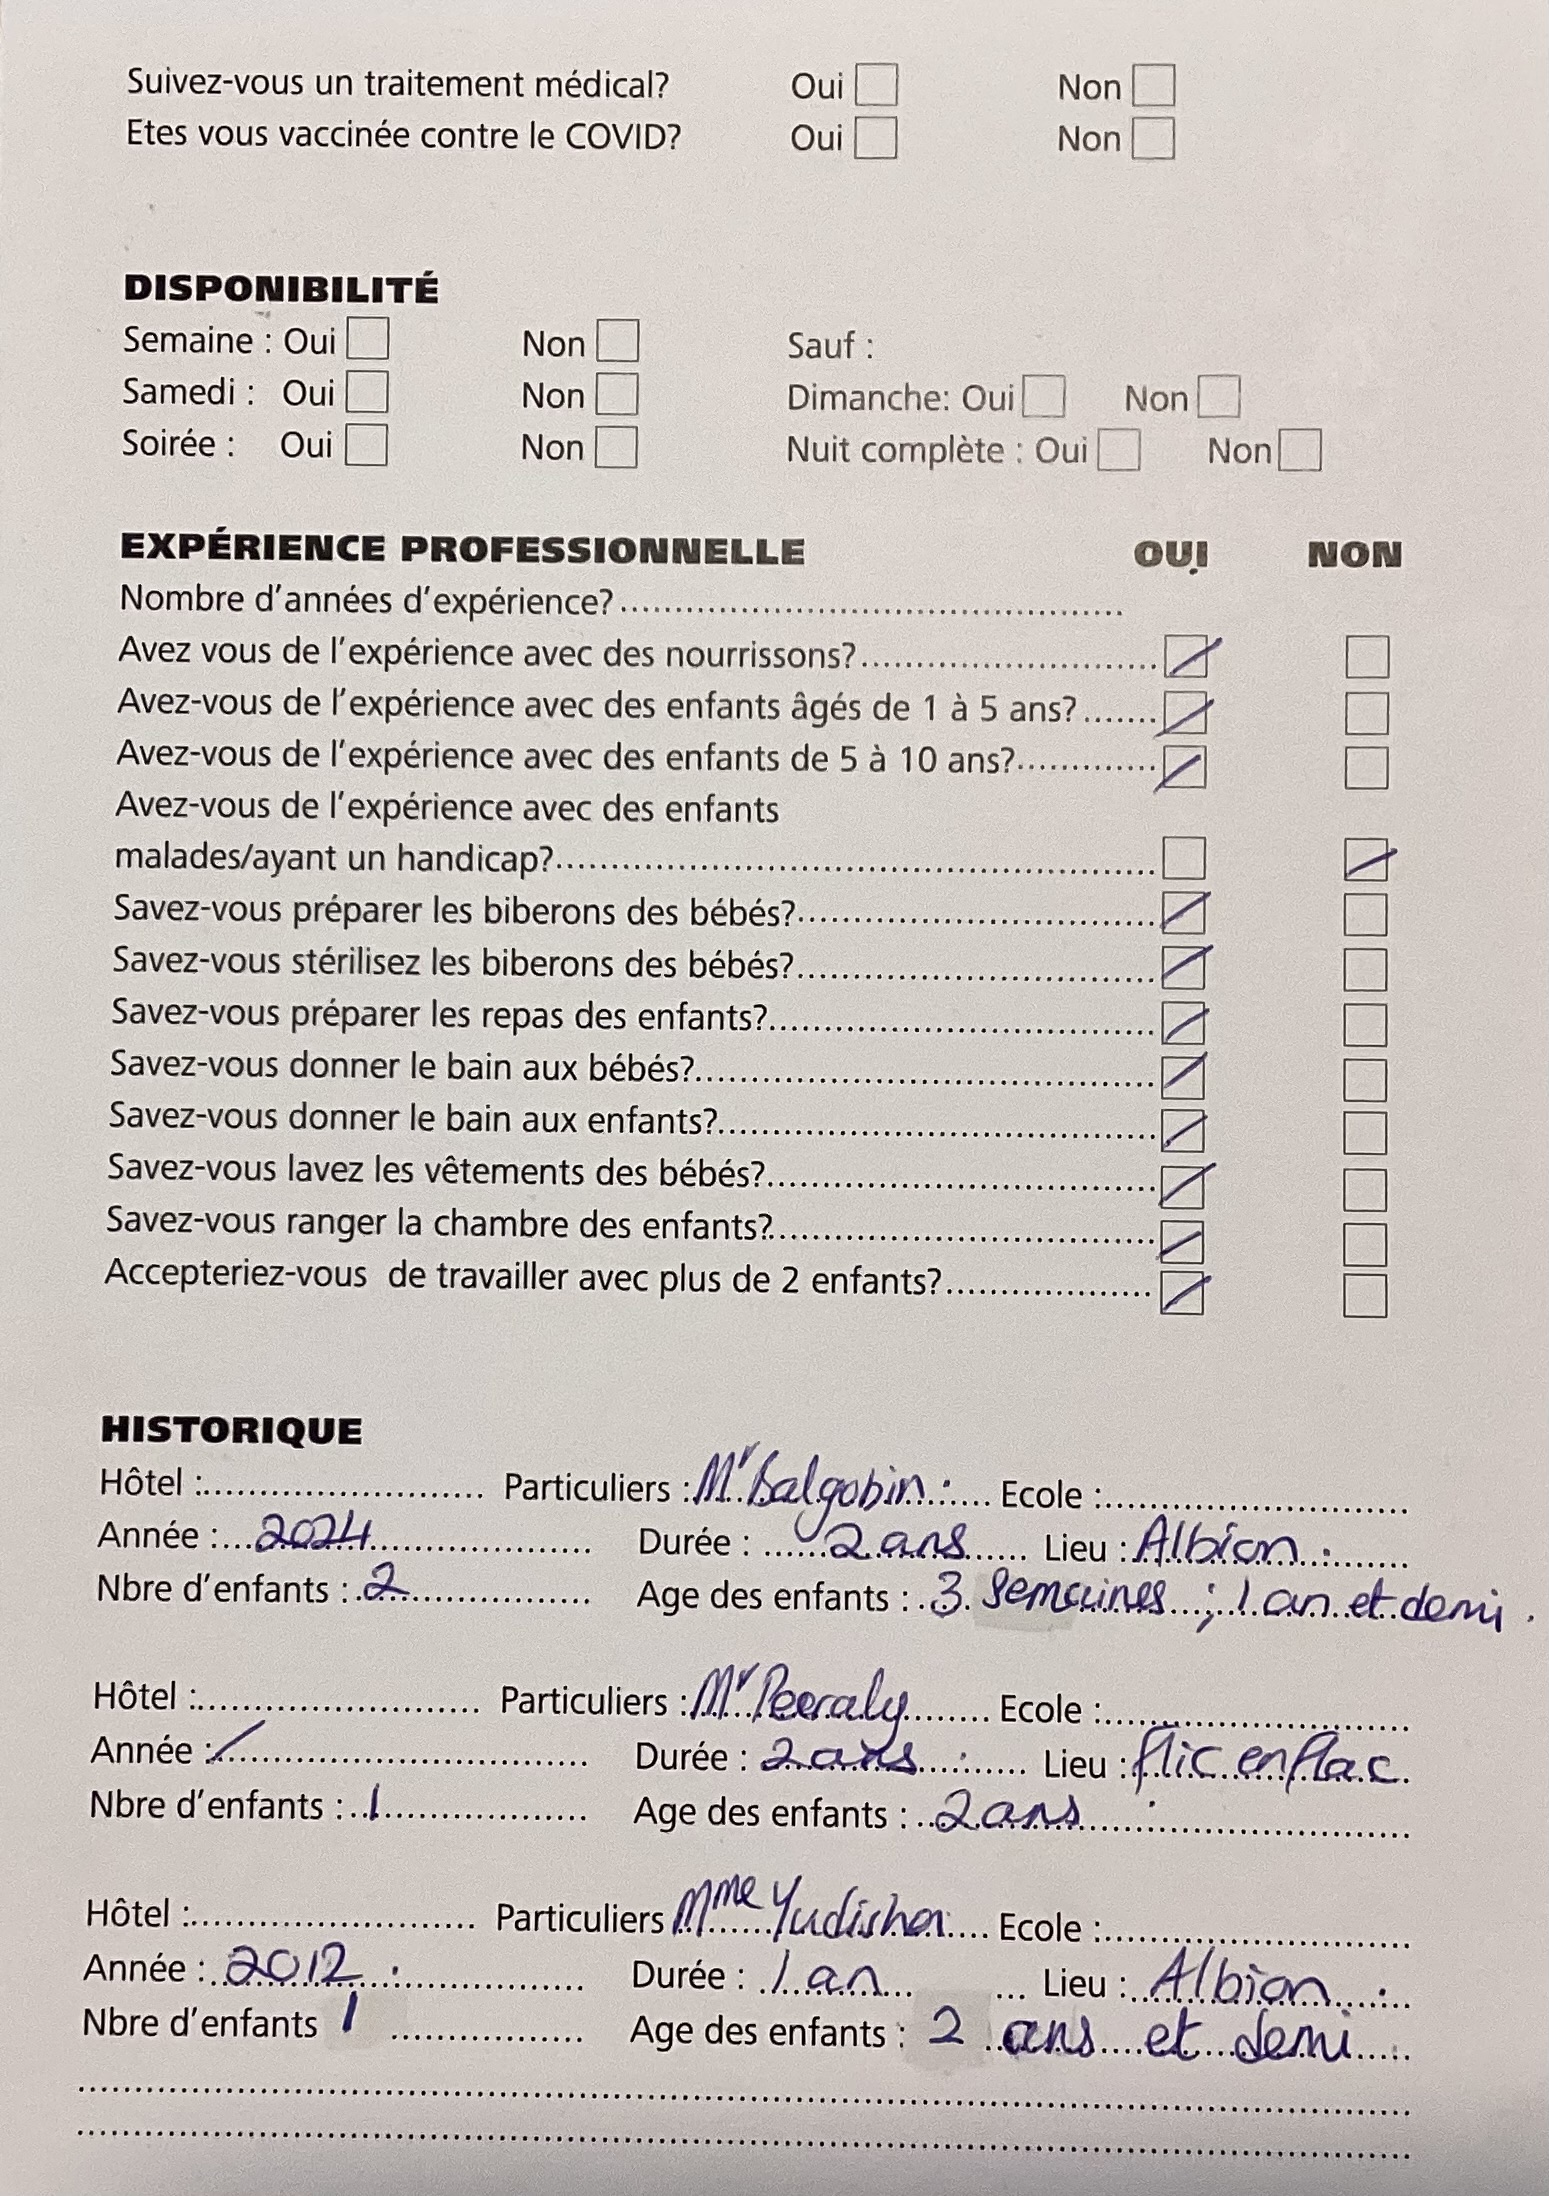 Suivez-vous un traitement médical? Oui Non
Etes vous vaccinée contre le COVID? Oui Non
DISPONIBILITÉ
Semaine : Oui Non Sauf :
Samedi : Oui Non Dimanche: Oui Non
Soirée : Oui Non Nuit complète : Oui Non
EXPÉRIENCE PROFESSIONNELLE OUI NON
Nombre d'années d'expérience?
Avez vous de l'expérience avec des nourrissons?
Avez-vous de l'expérience avec des enfants âgés de 1 à 5 ans?
Avez-vous de l'expérience avec des enfants de 5 à 10 ans?
Avez-vous de l'expérience avec des enfants
malades/ayant un handicap?
Savez-vous préparer les biberons des bébés?
Savez-vous stérilisez les biberons des bébés?
Savez-vous préparer les repas des enfants?
Savez-vous donner le bain aux bébés?
Savez-vous donner le bain aux enfants?
Savez-vous lavez les vêtements des bébés?
Savez-vous ranger la chambre des enfants?
Accepteriez-vous de travailler avec plus de 2 enfants?
HISTORIQUE
Hôtel : Particuliers : Mr Balgobin. Ecole :
Année : 2024 Durée : 2 ans Lieu : Albion.
Nbre d'enfants : 2 Age des enfants : 3 semaines ; 1 an et demi.
Hôtel : Particuliers : Mr Peeraly Ecole :
Année : / Durée : 2 ans. Lieu : flic en flac.
Nbre d'enfants : 1 Age des enfants : 2 ans.
Hôtel : Particuliers Mme Yudisha. Ecole :
Année : 2012. Durée : 1 an Lieu : Albion.
Nbre d'enfants 1 Age des enfants : 2 ans et demi